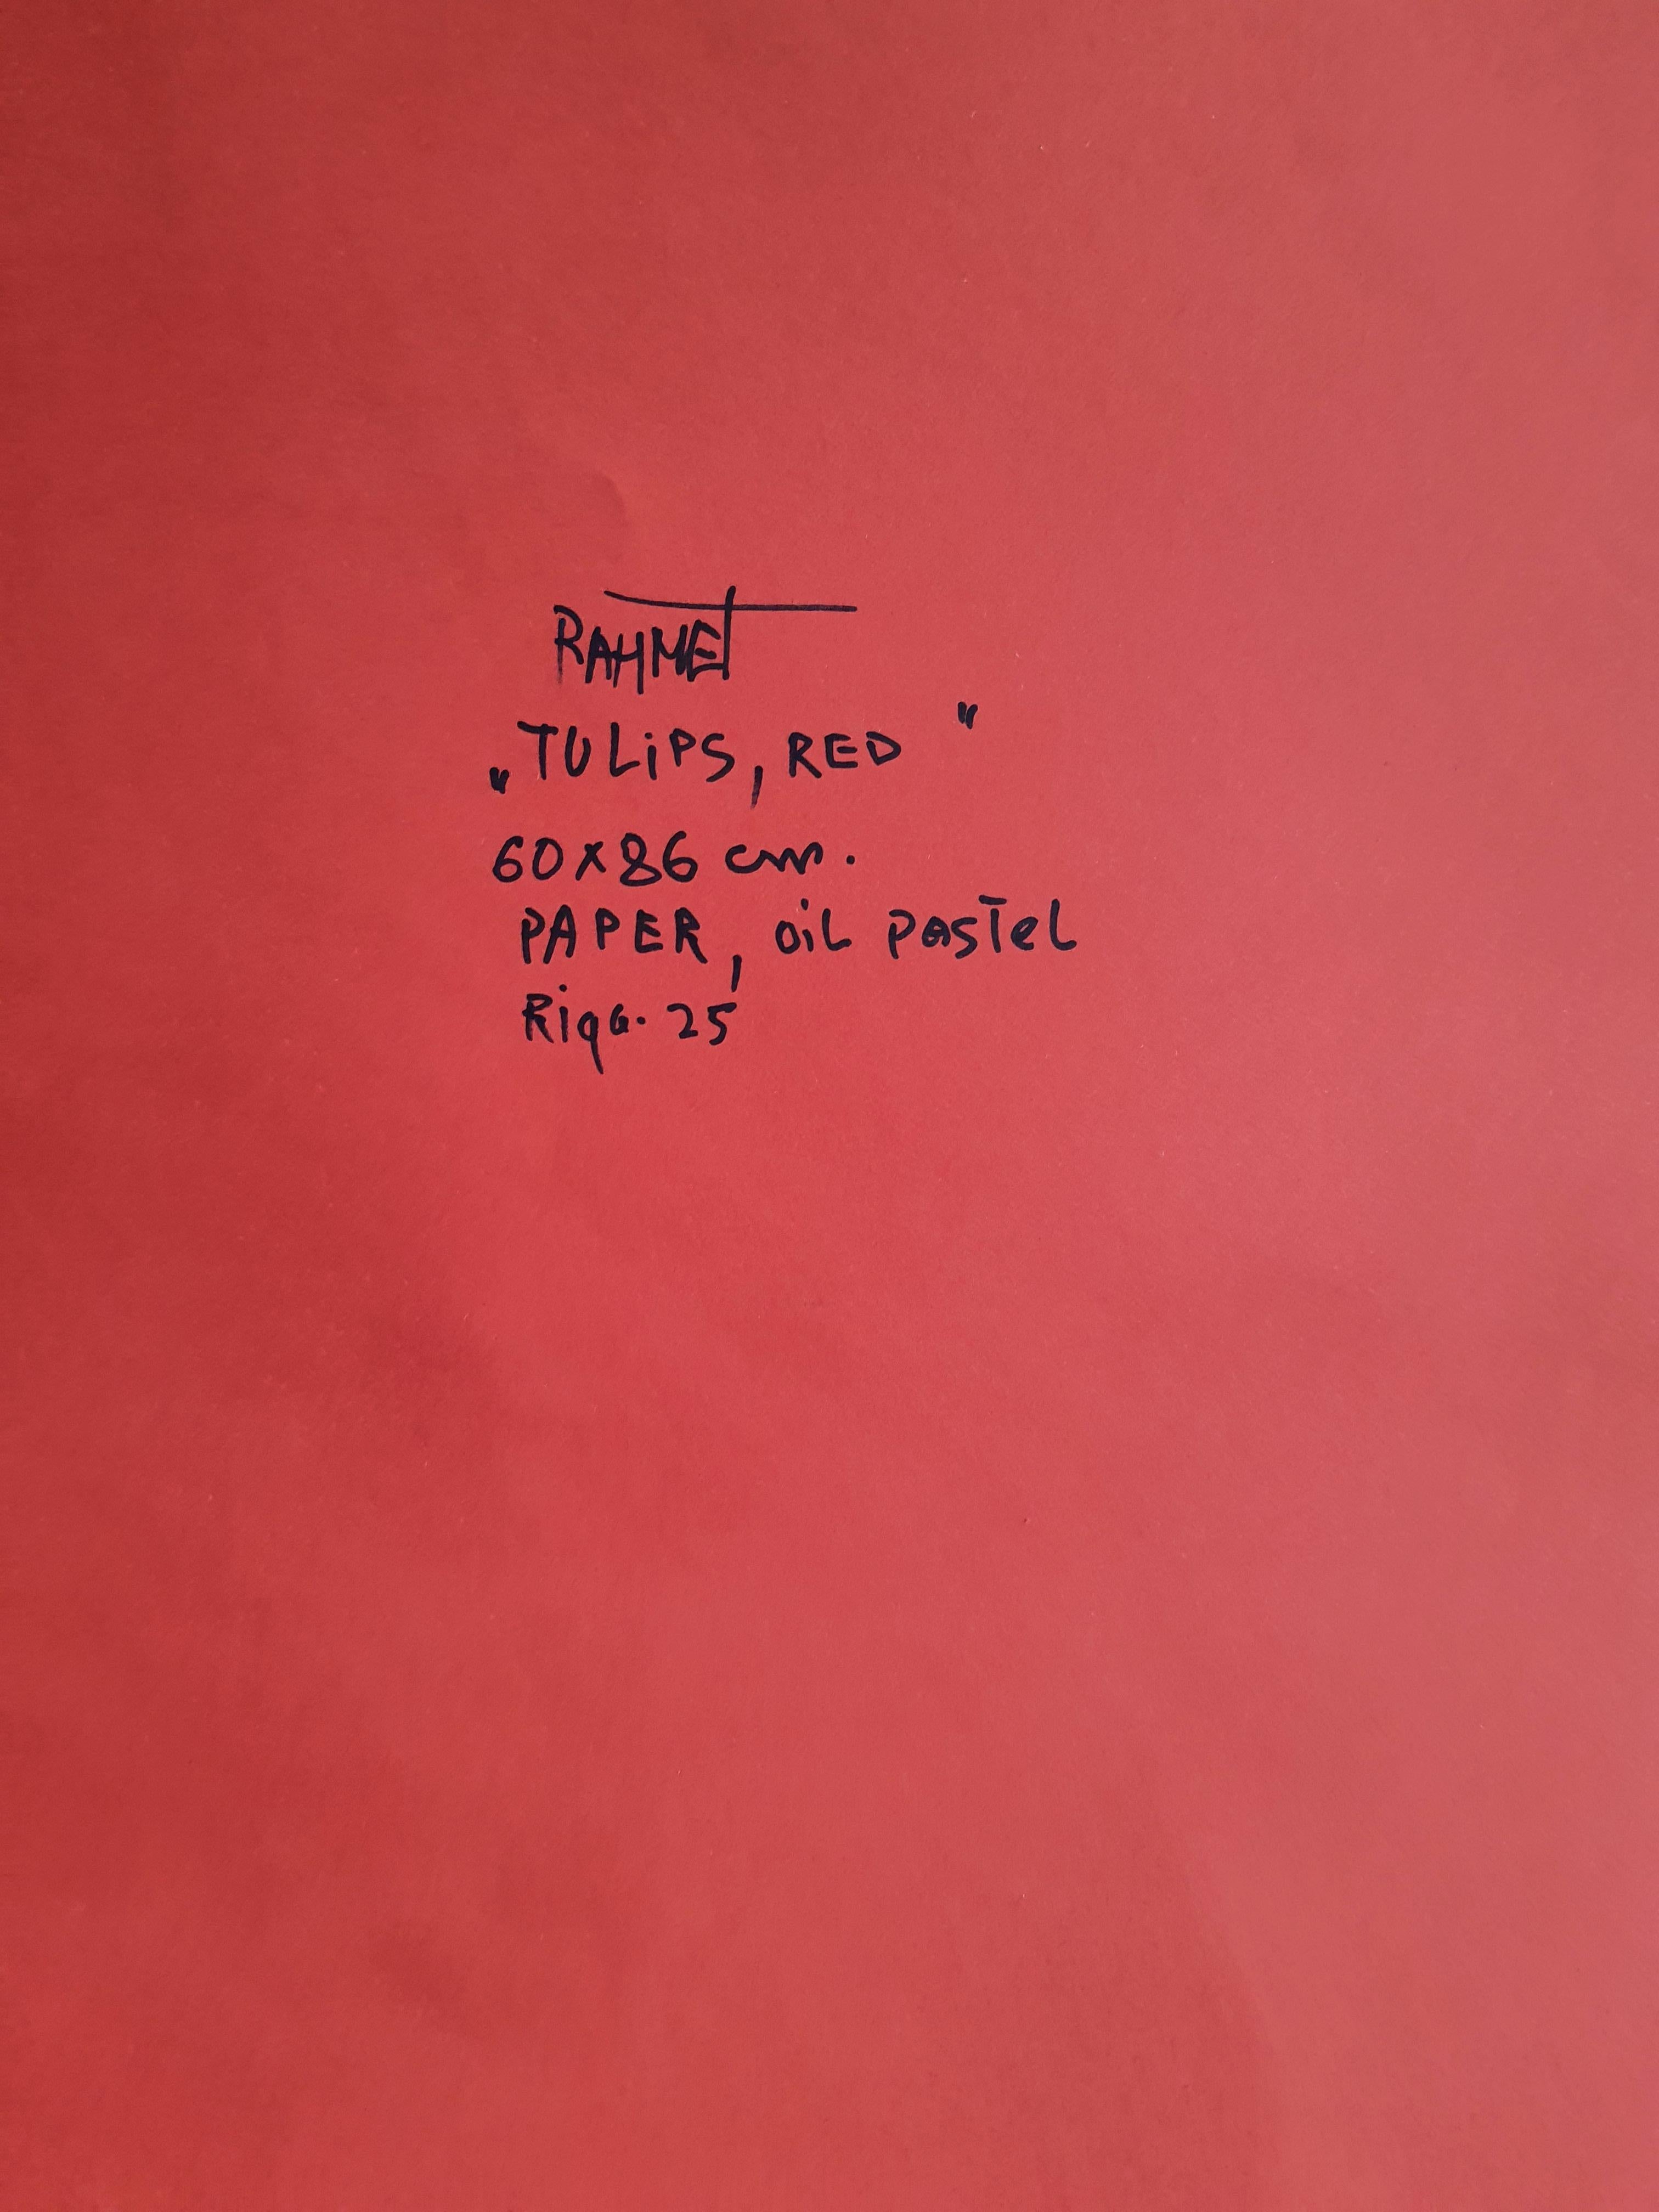 RAHMET
„TULiPS, RED"
60x86 cm.
PAPER, oiL pasTeL
Riga. 25